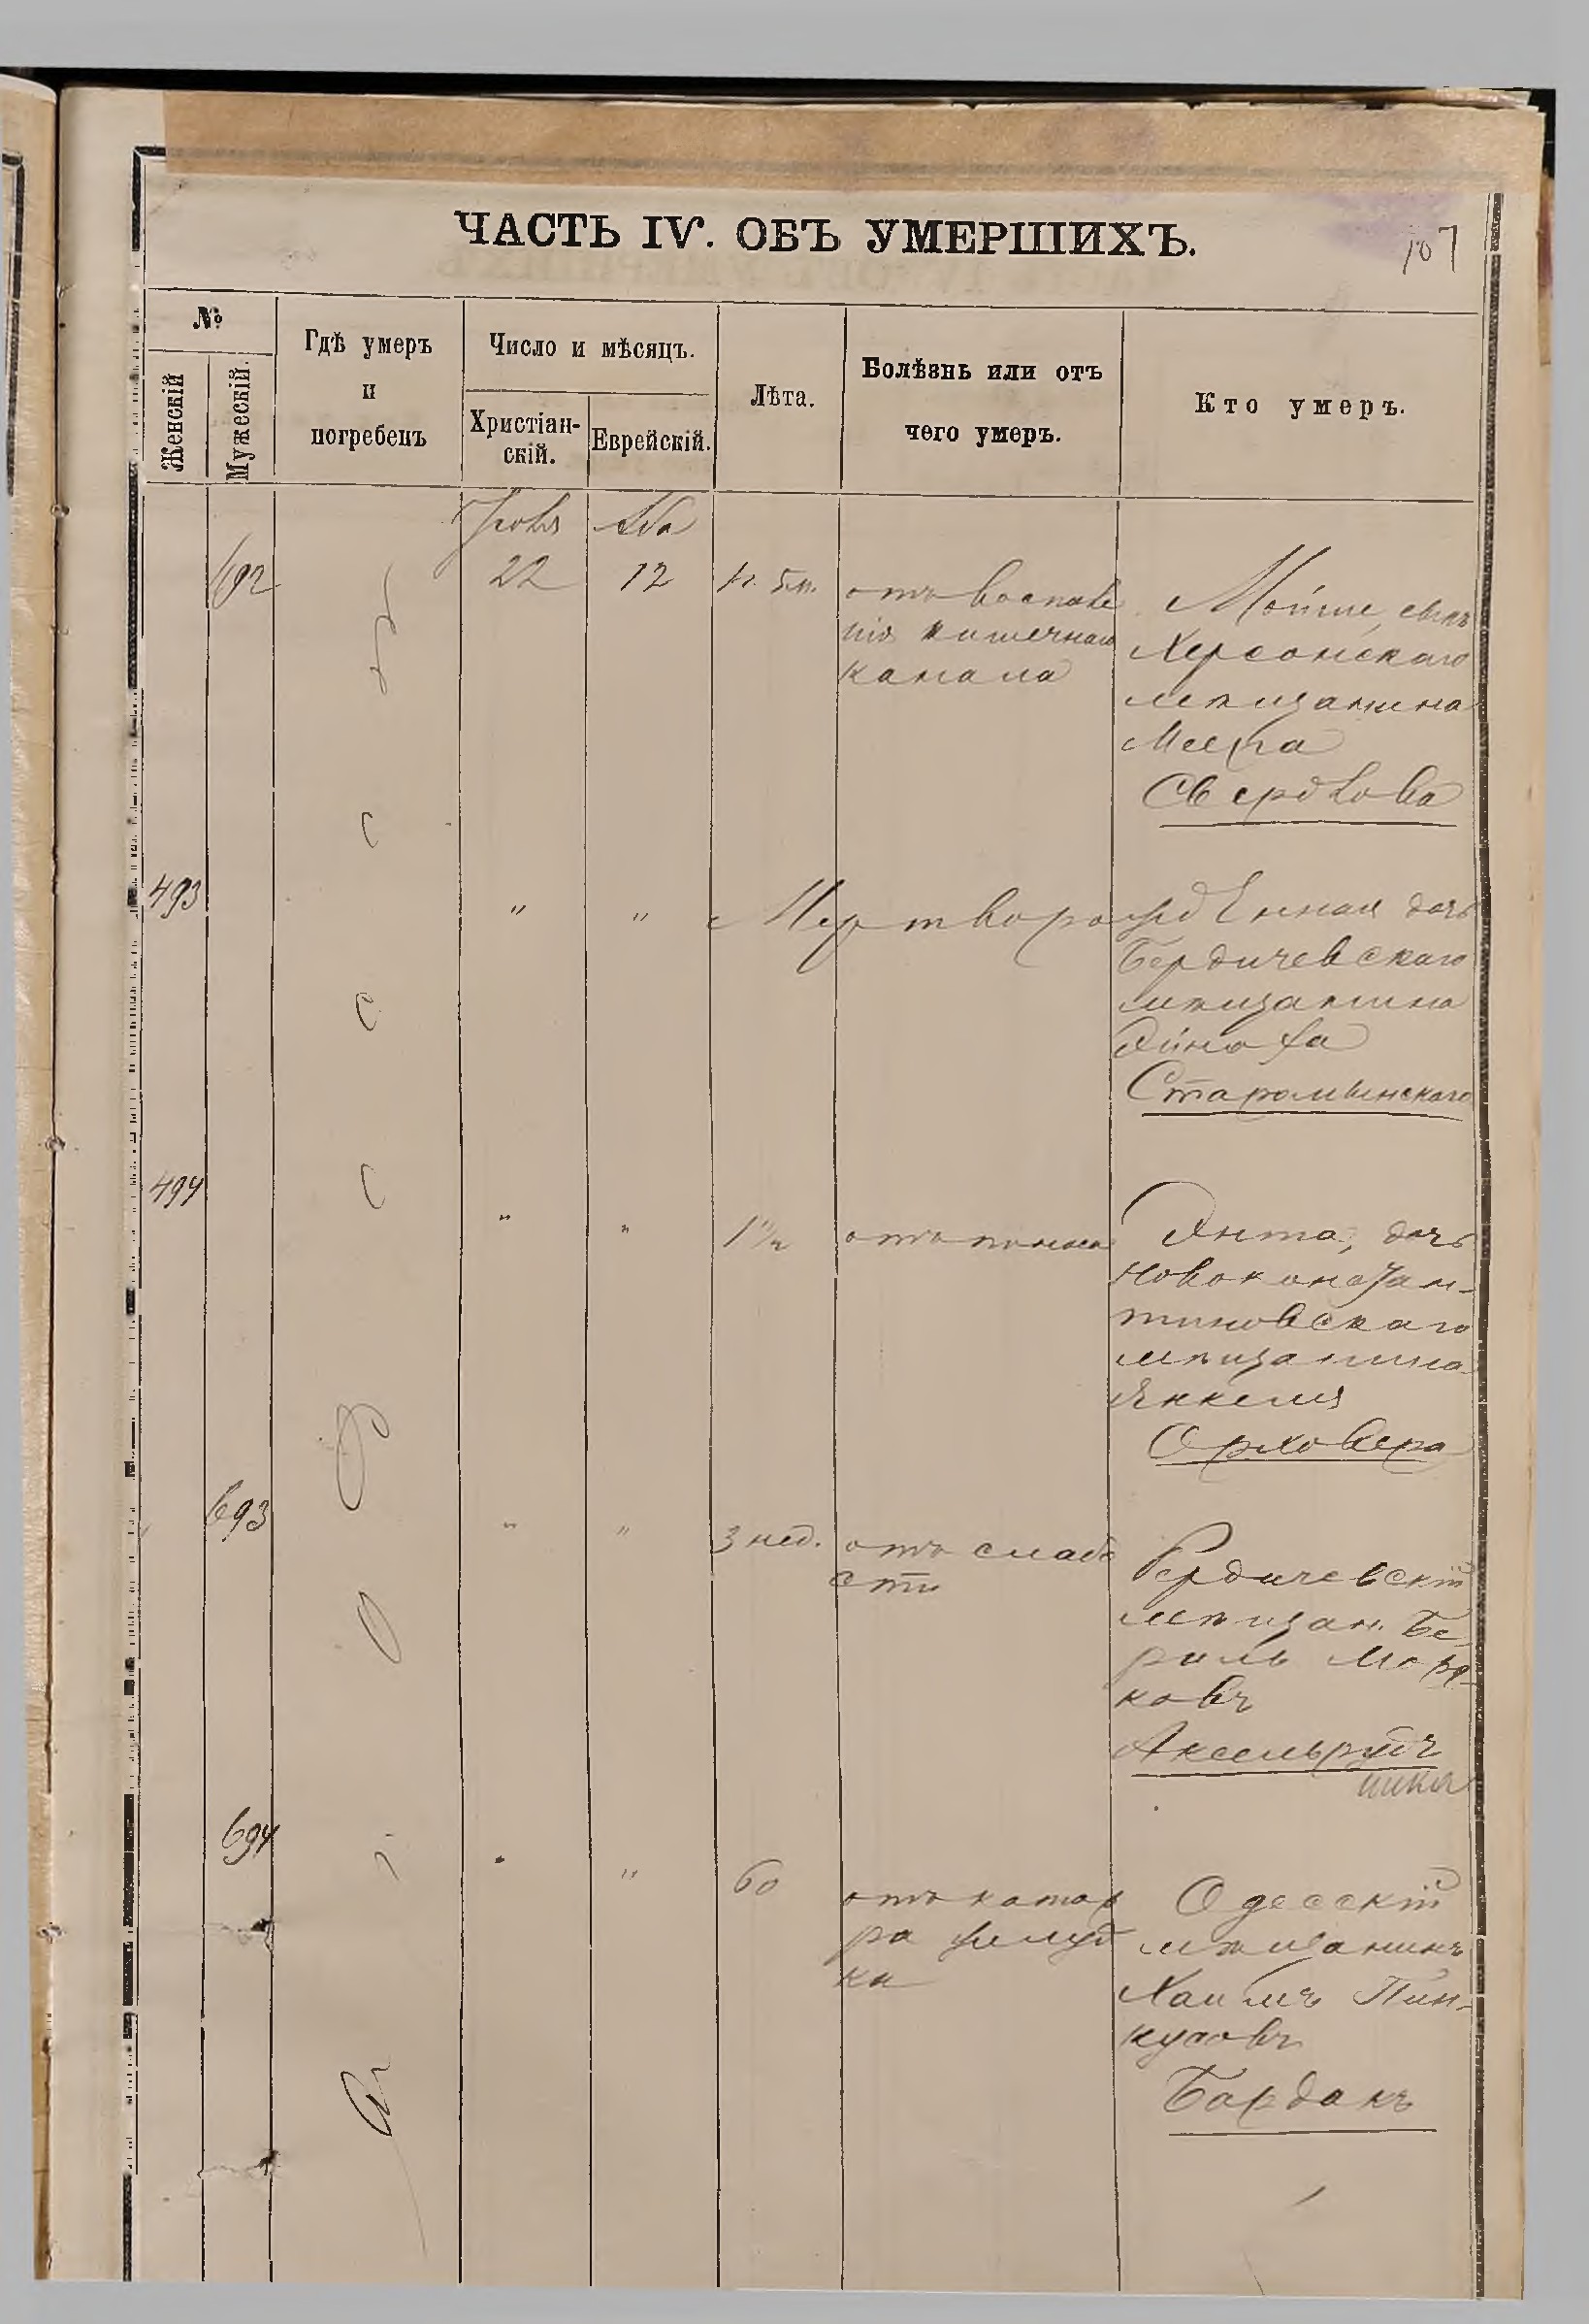 ЧАСТЬ IV. ОБЪ УМЕРШИХЪ.
107
№
Женскій
Мужескій.
Гдѣ умеръ
и
погребенъ
Число и мѣсяцъ.
Христіан-
скій.
Еврейскій.
Лѣта.
Болѣзнь или отъ
чего умеръ.
Кто умеръ.
692
22
12
отъ воспале
нія кишечнаго
канала
Мойше, сынъ
Херсонскаго
мѣщанина
Меера
Свердлова
493
"
"
Мертворожденная дочь
Бердичевскаго
мѣщанина
Айноха
494
"
"
1 1/2
отъ поноса
Янта, дочь
Новоконстан-
тиновскаго
мѣщанина
Янкеля
Орховера
693
"
"
3 нед.
отъ слабо
сти
Бердичевскій
мѣщан. Бе-
риль Морд-
ковъ
Аксельруд
694
"
"
60
отъ катар
ра желуд
ка
Одесскій
мѣщанинъ
Хаимъ Пин-
кусовъ
Бардакъ
Одесса